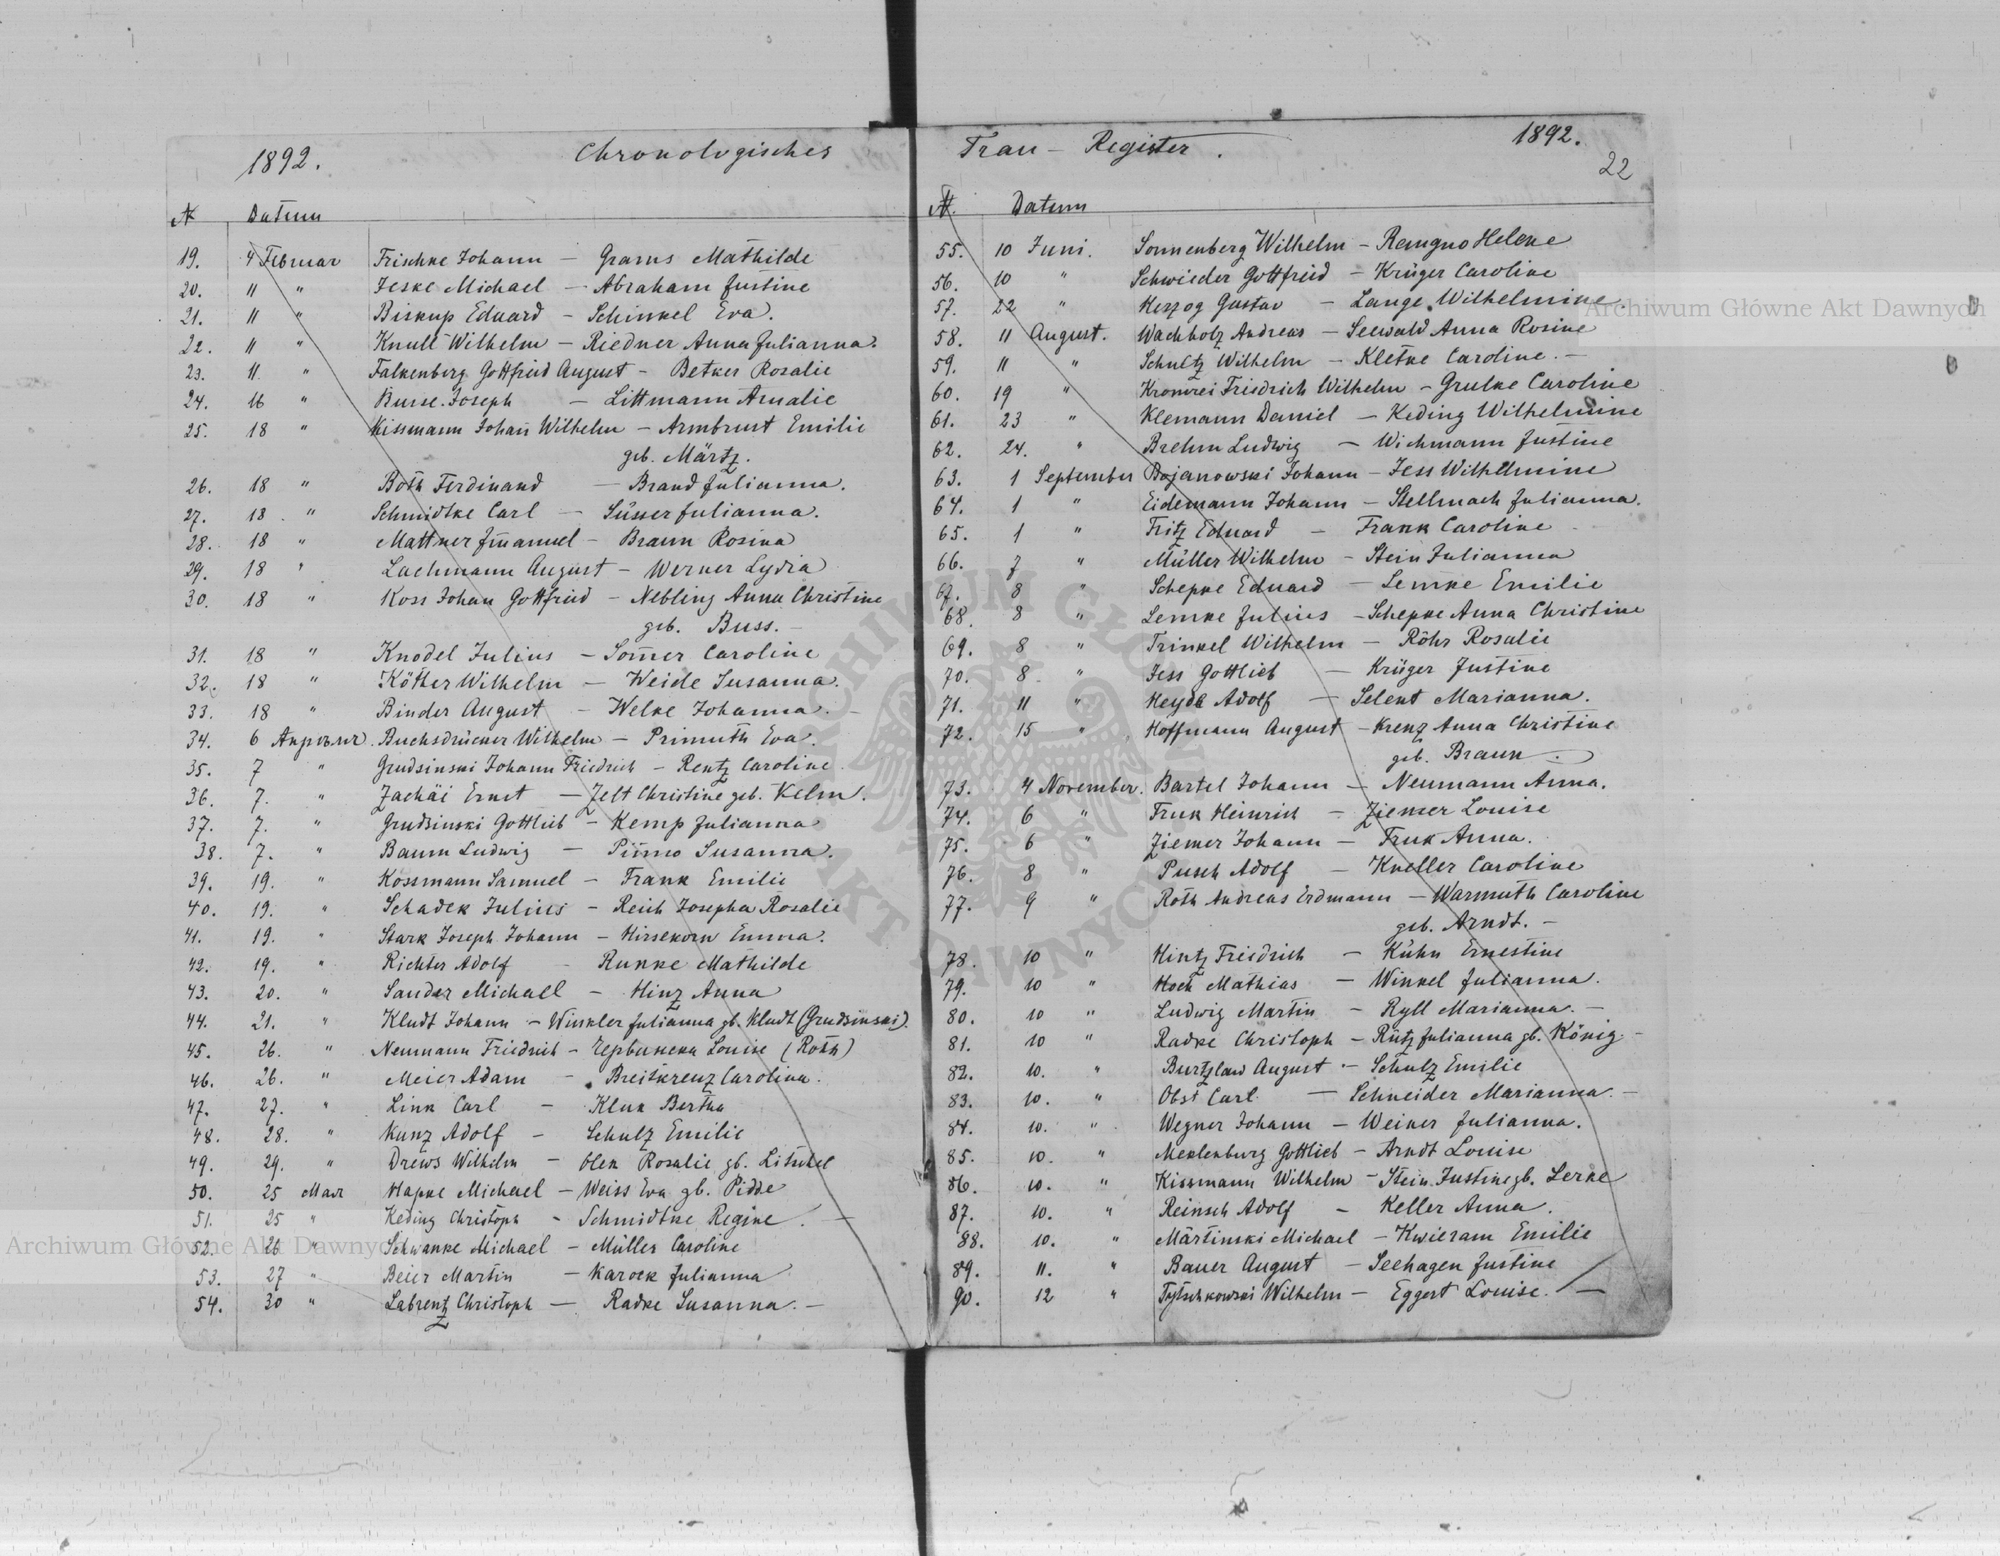 1892. Chronologisches
№ Datum
19. 4 Februar Frischke Johann — Grams Mathilde
20. 11 " Jeske Michael — Abraham Justine
21. 11 " Biskup Eduard — Schinkel Eva.
22. 11 " Knull Wilhelm — Riedner Anna Julianna.
23. 11. " Falkenberg Gottfried August — Betker Rosalie
24. 16 " Busse Joseph — Littmann Amalie
25. 18 " Kissmann Johann Wilhelm — Armbrust Emilie
geb. Märtz.
26. 18 " Both Ferdinand — Brand Julianna.
27. 18 " Schmidtke Carl — Süsser Julianna.
28. 18 " Mattner Immanuel — Braun Rosina
29. 18 " Lachmann August — Werner Lydia
30. 18 " Koss Johan Gottfried — Nebling Anna Christine
geb. Buss. —
31. 18 " Knodel Julius — Som̄er Caroline
32. 18 " Köther Wilhelm — Weide Susanna.
33. 18 " Binder August — Welke Johanna. —
34. 6 Buchsdrücker Wilhelm — Primuth Eva.
35. 7 " Grudsinski Johann Friedrich — Rentz Caroline
36. 7. " Zachäi Ernst — Zelt Christine geb. Kelm.
37. 7. " Grudsinski Gottlieb — Kemp Julianna
38. 7. " Baum Ludwig — Susanna.
39. 19. " Kossmann Samuel — Frank Emilie
40. 19. " Schadek Julius — Reich Josepha Rosalie
41. 19. " Stark Joseph Johann — Hirsekorn Emma.
42. 19. " Richter Adolf — Runke Mathilde
43. 20. " Sander Michael — Hinz Anna
44. 21. " Kludt Johann — Winkler Julianna gb. Kludt (Grudsinski).
45. 26. " Neumann Friedrich — Червинска Louise (Roth)
46. 26. " Meier Adam — Breitkreuz Carolina.
47. 27. " Link Carl — Kluk Bertha
48. 28. " Kunz Adolf — Schulz Emilie
49. 29. " Drews Wilhelm — Olek Rosalie gb. Litschel
50. 25 Мая Hapke Michael — Weiss Eva gb. Pidde
51. 25 " Keding Christoph — Schmidtke Regine. —
52. 26 " Schwanke Michael — Müller Caroline
53. 27 " Beier Martin — Karock Julianna
54. 30 " Labrentz Christoph — Radke Susanna. —
Trau — Register. 1892.
22
№. Datum
55. 10 Juni. Sonnenberg Wilhelm — Helene
56. 10 " Schwieder Gottfried — Krüger Caroline
57. 22 " Herzog Gustav — Lange Wilhelmine
58. 11 August. Wachholz Andreas — Seewald Anna Rosine
59. 11 " Schultz Wilhelm — Kletke Caroline. —
60. 19 " Friedrich Wilhelm — Grulke Caroline
61. 23 " Klemann Daniel — Keding Wilhelmine
62. 24. " Brehm Ludwig — Wichmann Justine
63. 1 September Bojanowski Johann — Jess Wilhelmine
64. 1 " Eidemann Johann — Stellmach Julianna.
65. 1 " Fritz Eduard — Frank Caroline
66. 7 " Müller Wilhelm — Stein Julianna
67. 8 " Schepke Eduard — Lemke Emilie
68. 8 " Lemke Julius — Schepke Anna Christine
69. 8 " Trinkel Wilhelm — Röhr Rosalie
70. 8 " Jess Gottlieb — Krüger Justine
71. 11 " Heyde Adolf — Selent Marianna.
72. 15 " Hoffmann August — Krenz Anna Christine
geb. Braun.
73. 4 November. Bartel Johann — Neumann Anna.
74. 6 " Fruk Heinrich — Ziemer Louise
75. 6 " Ziemer Johann — Fruk Anna.
76. 8 " Pusch Adolf — Kneller Caroline
77. 9 " Roth Andreas Erdmann — Warmuth Caroline
geb. Arndt. —
78. 10 " Hintz Friedrich — Kühn Ernestine
79. 10 " Hoch Mathias — Winkel Julianna.
80. 10 " Ludwig Martin — Ryll Marianna. —
81. 10 " Radke Christoph — Rütz Julianna gb. König —
82. 10. " Burtzlaw August — Schulz Emilie
83. 10. " Obst Carl — Schneider Marianna. —
84. 10. " Wegner Johann — Weiner Julianna.
85. 10. " Meklenburg Gottlieb — Arndt Louise
86. 10. " Kissmann Wilhelm — Stein Justine gb. Lerke
87. 10. " Reinsch Adolf — Keller Anna.
88. 10. " Märtinski Michael — Kwieram Emilie
89. 11. " Bauer August — Seehagen Justine
90. 12 " Tytschkowski Wilhelm — Eggert Louise. —
Archiwum Główne Akt Dawnych
Archiwum Główne Akt Dawnych
ARCHIWUM GŁÓWNE AKT DAWNYCH